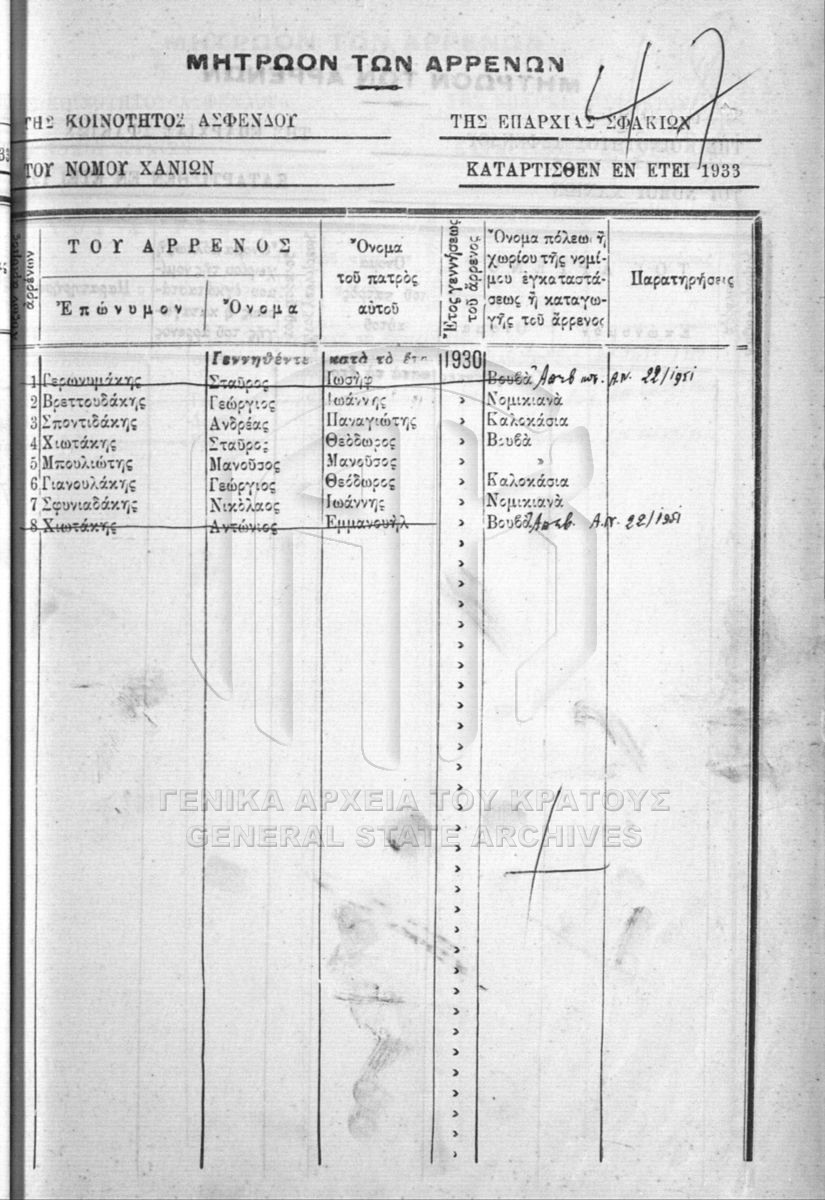 ΜΗΤΡΩΟΝ ΤΩΝ ΑΡΡΕΝΩΝ
47
ΤΗΣ ΚΟΙΝΟΤΗΤΟΣ ΑΣΦΕΝΔΟΥ ΤΗΣ ΕΠΑΡΧΙΑΣ ΣΦΑΚΙΩΝ
ΤΟΥ ΝΟΜΟΥ ΧΑΝΙΩΝ ΚΑΤΑΡΤΙΣΘΕΝ ΕΝ ΕΤΕΙ 1933
ἀρρένων
ΤΟΥ ΑΡΡΕΝΟΣ
Ἐπώνυμον Ὄνομα
Ὄνομα
τοῦ πατρὸς
αὐτοῦ
Ἔτος γεννήσεως
τοῦ ἄρρενος
Ὄνομα πόλεω ἢ
χωρίου τῆς νομί-
μου ἐγκαταστά-
σεως ἢ καταγω-
γῆς τοῦ ἄρρενος
Παρατηρήσεις
Γεννηθέντε κατὰ τὸ ἔτο 1930
1 Γερωνυμάκης Σταῦρος Ἰωσὴφ Βουβᾶ Α.Ν. 22/1951
2 Βρεττουδάκης Γεώργιος Ἰωάννης Νομικιανὰ
3 Σποντιδάκης Ἀνδρέας Παναγιώτης » Καλοκάσια
4 Χιωτάκης Σταῦρος Θεόδωρος » Βουβᾶ
5 Μπουλιώτης Μανοῦσος Μανοῦσος » »
6 Γιανουλάκης Γεώργιος Θεόδωρος » Καλοκάσια
7 Σφυνιαδάκης Νικόλαος Ἰωάννης » Νομικιανὰ
8 Χιωτάκης Ἀντώνιος Ἐμμανουὴλ » Βουβᾶ Α.Ν. 22/1951
ΓΕΝΙΚΑ ΑΡΧΕΙΑ ΤΟΥ ΚΡΑΤΟΥΣ
GENERAL STATE ARCHIVES